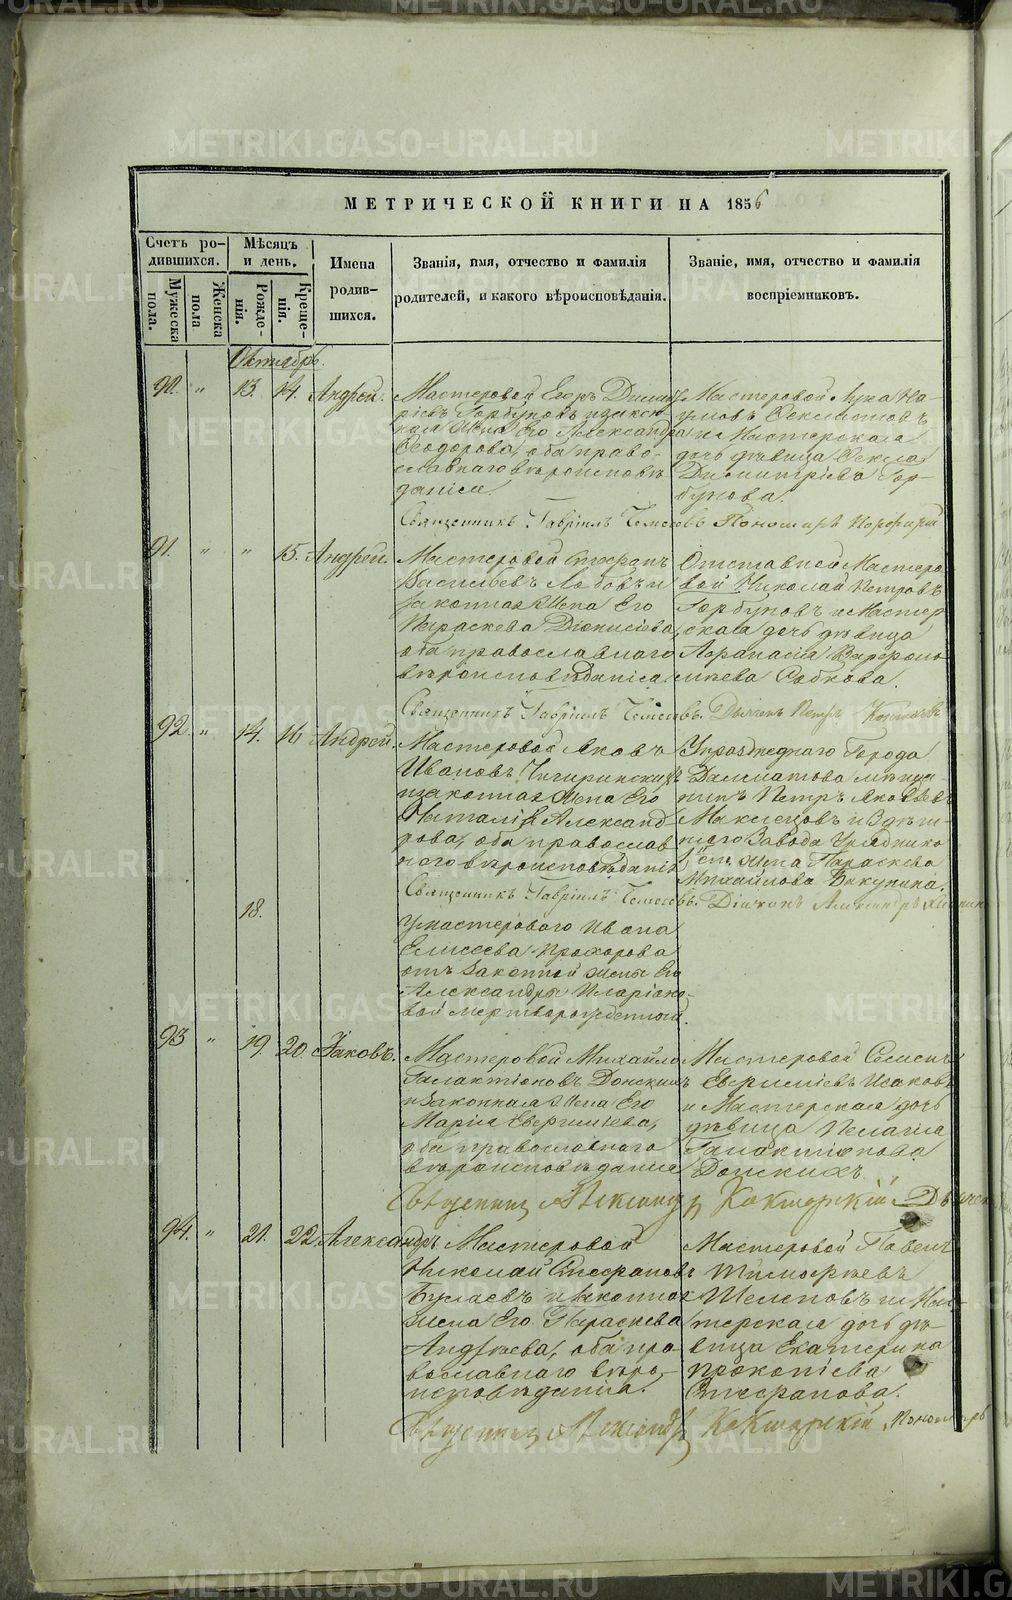 МЕТРИЧЕСКОЙ КНИГИ НА 1856
Счетъ ро-
дившихся.
Мѣсяцъ
и день.
Имена
родив-
шихся.
Званія, имя, отчество и фамилія
родителей, и какого вѣроисповѣданія.
Званіе, имя, отчество и фамилія
воспріемниковъ.
Мужеска
пола.
Женска
пола
Рожде-
нія.
Креще-
нія.
Октябрь.
90. " 13. 14. Андрей.
Мастеровой Егоръ Димит
ріевъ Горбуновъ и закон
ная жена Его Александра
Ѳеодорова, оба право-
славнаго вѣроисповѣ
данія.
Мастеровой Лука На-
умовъ
и Мастерская
дочь дѣвица Ѳекла
Димитріева Гор-
бунова.
Священникъ Гавріилъ Пономарь Порфирій
91. " " 15. Андрей.
Мастеровой Стефанъ
Васильевъ Лобовъ и
законная жена Его
Параскева Діонисіева,
оба православнаго
вѣроисповѣданія
Отставной Мастеро
вой Николай Петровъ
Горбуновъ и Мастер
ская дочь дѣвица
Афанасія Варфоло-
мѣева Собкова.
Священникъ Гавріилъ Дьячекъ Петръ
92. " 14. 16 Андрей.
Мастеровой Яковъ
Ивановъ Чигиринскихъ
и законная жена Его
Наталія Александ
рова, оба православ
наго вѣроисповѣданія
Упразднаго Города
Далматова мѣща-
нинъ Петръ Яковлевъ
Максецовъ и Здѣш-
няго Завода Уряднико
жена Параскева
Михайлова Бакунина.
Священникъ Гавріилъ Діаконъ Александръ
18.
У мастероваго Ивана
Елисеева Прохорова
отъ законной жены Его
Александры Иларіоно-
вой мертворожденной.
93 " 19. 20. Іаковъ.
Мастеровой Михайло
Галактіоновъ Донскихъ
и законная жена Его
Марія Евфиміева,
оба православнаго
вѣроисповѣданія
Мастеровой Семенъ
Евфиміевъ Исаковъ
и Мастерская дочь
дѣвица Пелагія
Галактіонова
Донскихъ
Священникъ Александръ Кокшарскій Дьячекъ
94. " 21. 22 Александръ
Мастеровой
Николай Стефановъ
Булаевъ и законная
жена Его Параскева
Андреева, оба пра
вославнаго вѣро-
исповѣданія.
Мастеровой Павелъ
Тимофѣевъ
Шелеповъ и Мас-
терская дочь дѣ-
вица Екатерина
Прокопіева
Стефанова.
Священникъ Александръ Кокшарскій, Пономарь
METRIKI.GASO-URAL.RU